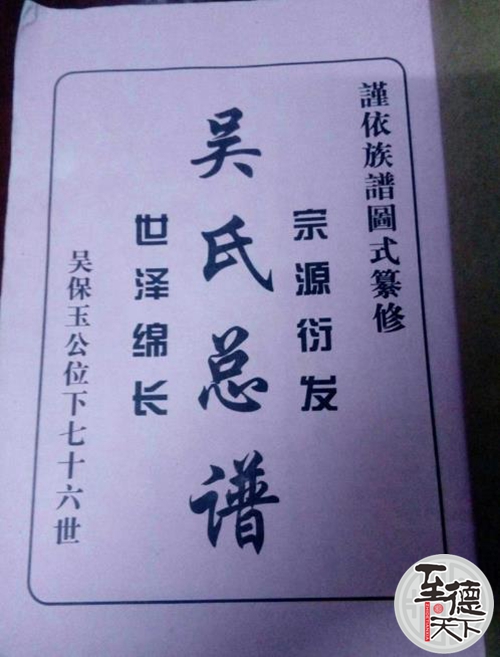 謹依族譜圖式纂修
宗源衍发
吴氏总谱
世泽绵长
吴保玉公位下七十六世
至德天下